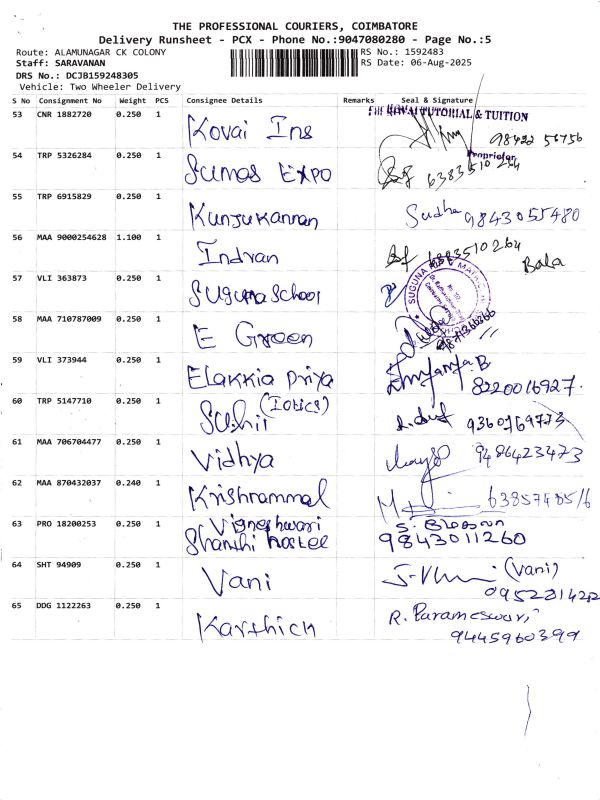 THE PROFESSIONAL COURIERS, COIMBATORE
Delivery Runsheet - PCX - Phone No.:9047080280 - Page No.:5
Route: ALAMUNAGAR CK COLONY RS No.: 1592483
Staff: SARAVANAN RS Date: 06-Aug-2025
DRS No.: DCJB159248305
Vehicle: Two Wheeler Delivery
S No Consignment No Weight PCS Consignee Details Remarks Seal & Signature
53 CNR 1882720 0.250 1 Kovai Ins TUTORIAL & TUITION
98422 56756
Proprietor
54 TRP 5326284 0.250 1 Sumas Expo 6383510264
55 TRP 6915829 0.250 1 Kunjukannan Sudha 9843055480
56 MAA 9000254628 1.100 1 Indran Bala
57 VLI 363873 0.250 1 Suguna School SUGUNA
58 MAA 710787009 0.250 1 E Green
59 VLI 373944 0.250 1 Elakkia Priya 8220016927.
60 TRP 5147710 0.250 1 Suhii 9360769773
61 MAA 706704477 0.250 1 Vidhya 9486423473
62 MAA 870432037 0.240 1 Krishnammal
63 PRO 18200253 0.250 1 Vigneshwari
Shanthi hostel 9843011260
64 SHT 94909 0.250 1 Vani (Vani)
65 DDG 1122263 0.250 1 Karthick R. Parameswari
9445960399